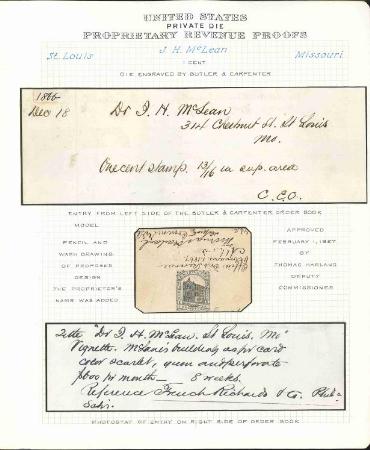 UNITED STATES
PRIVATE DIE
PROPRIETARY REVENUE PROOFS
St. Louis J. H. McLean Missouri
1 CENT
DIE ENGRAVED BY BUTLER & CARPENTER
1866
Dec 18 Dr J. H. McLean
314 Chestnut St. St Louis
Mo.
One cent stamp 13/16 in sup. area
C. C. O.
ENTRY FROM LEFT SIDE OF THE BUTLER & CARPENTER ORDER BOOK
MODEL
PENCIL AND
WASH DRAWING
OF PROPOSED
DESIGN
THE PROPRIETOR'S
NAME WAS ADDED
APPROVED
FEBRUARY 1, 1867
BY
THOMAS HARLAND
DEPUTY
COMMISSIONER
Title "Dr J. H. McLean. St Louis, Mo"
Vignette. McLeans building as per card
color scarlet, gum and perforate
$600 per month — 8 weeks.
Reference French Richards & Co. Phila
PHOTOSTAT OF ENTRY ON RIGHT SIDE OF ORDER BOOK